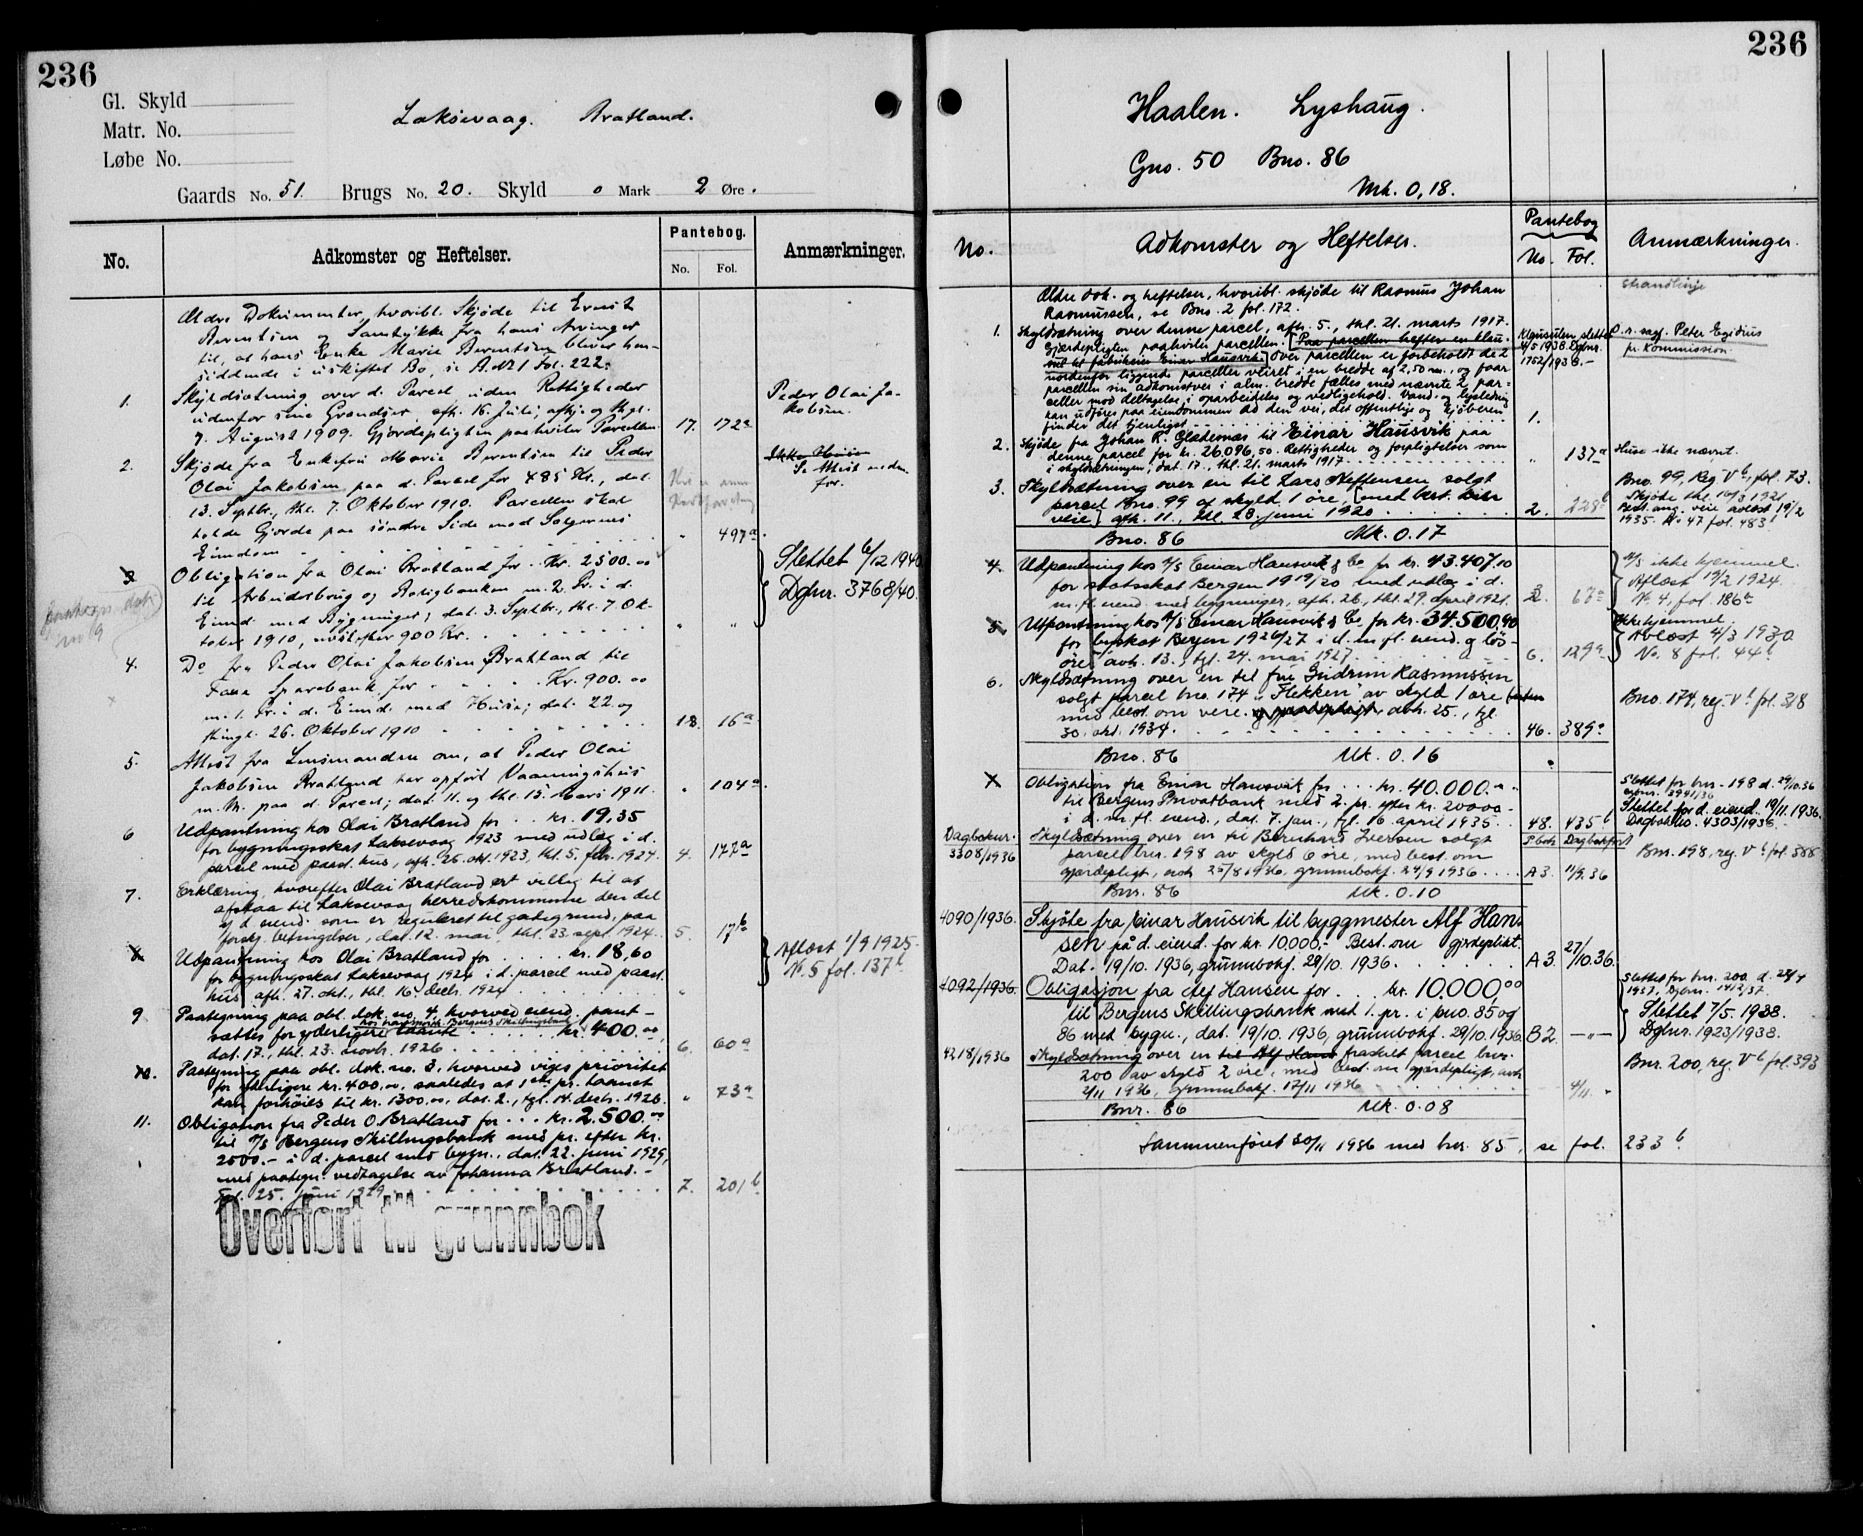 236
Gl. Skyld
Matr. No.
Løbe No.
Laksevaag. Bratland.
Gaards No. 51. Brugs No. 20. Skyld 0 Mark 2 Øre.
No.
Adkomster og Heftelser.
Pantebog.
No. Fol.
Anmærkninger.
Ældre Dokumenter, hvoribl. Skjøde til Ernst
Berentsen og Samtykke fra hans Arvinger
til, at hans Enke Marie Berentsen bliver hen-
siddende i uskiftet Bo, se A.Nr1 Fol. 222.
1. Skyldsætning over d. Parcel, uden Rettigheder
udenfor sine Grændser, afh. 16. Juli, afhj. og thgl.
7. August 1909. Gjerdepligten paahviler Parcellen. 17. 172a
Peder Olai Ja-
kobsen.
2. Skjøde fra Enkefru Marie Berentsen til Peder
Olai Jakobsen paa d. Parcel for 485 Kr., dat.
13. Septbr., thl. 7. Oktober 1910. Parcellen skal
holde Gjerde paa søndre Side mod Selgerens
Eiendom " 497a
Se Attest neden-
for.
3. Obligation fra Olai Bratland for Kr. 2500.00
til Arbeiderbrug og Boligbanken m. 2. Pr. i d.
Eiend. med Bygninger, dat. 3. Septbr., thl. 7. Ok-
tober 1910, næst efter 900 Kr. " "
Slettet 6/12 1940
Dgbnr. 3768/40.
4. Do fra Peder Olai Jakobsen Bratland til
Fana Sparebank for Kr. 900.00
m. 1. Pr. i d. Eiend. med Huse; dat. 22. og
thingl. 26. Oktober 1910 18. 16a
5. Attest fra Lensmanden om, at Peder Olai
Jakobsen Bratland har opført Vaaningshus
m. M. paa d. Parcel; dat. 11. og thl. 15. Mars 1911. " 104a
6 Udpantning hos Olai Bratland for kr. 19,35
for bygningsskat Laksevaag 1923 med udlæg i d.
parcel med paast. hus, afh. 26. okt. 1923, thl. 5. febr. 1924. 4. 177a
7. Erklæring, hvorefter Olai Bratland er villig til at
afstaa til Laksevaag herredskommune den del
af d. eiend. som er reguleret til gadegrund, paa
forsk. betingelser, dat. 12. mai, thl. 23. sept. 1924. 5. 17b
8. Udpantning hos Olai Bratland for kr. 18,60
for bygningsskat Laksevaag 1924 i d. parcel med paast.
hus, afh. 27. okt., thl. 16. decb. 1924 "
Aflæst 1/9 1925.
N. 5 fol. 137b
9. Paategning paa obl. dok. no. 4, hvorved eiend. pant-
hos Bergens Skillingsbank
sættes for yderligere laante kr. 400.00,
dat. 17., thl. 23. novbr. 1926 6. 60a
10. Paategning paa obl. dok. no. 3, hvorved viges prioritet
for yderligere kr. 400.00, saaledes at 1ste pr. laanet
kan forhøies til kr. 1300.00, dat. 2., tgl. 14. decb. 1926. " 73a
11. Obligation fra Peder O. Bratland for kr. 2.500.00
til A/S Bergens Skillingsbank med pr. efter kr.
2500.- i d. parcel med bygn., dat. 22. juni 1929,
med paategn. vedtagelse av Johanna Bratland.-
Tgl. 25. juni 1929 7. 201b
Overført til grunnbok
236
Haalen. Lyshaug.
Gno. 50 Bno. 86
Mk. 0,18.
No.
Adkomster og Heftelser.
Pantebog
No. Fol.
Anmærkninger.
Ældre dok. og heftelser, hvoribl. skjøde til Rasmus Johan
Rasmussen, se Bno. 2 fol. 172.
Strandlinje
1. Skyldsætning over denne parcel, afh. 5., thl. 21. marts 1917.
Gjærdepligten paahviler parcellen. [Paa parcellen hefter en klau-
sul til fabrikeier Einar Hausvik.] Over parcellen er forbeholdt de 2
nordenfor liggende parceller veiret i en bredde af 2,50 m., og faar
parcellen sin adkomstvei i alm. bredde fælles med nævnte 2 par-
celler mod deltagelse i oparbeidelse og vedligehold. Vand- og lysledning
kan udføres paa eiendommen ad den vei, det offentlige og kjøberen
finder det tjenligst 1.
Klausulen slettet
4/5 1938. Dgbnr.
1752/1938.-
o.r. sagf. Peter Egidius
pr. Kommission.
2. Skjøde fra Johan R. Gladenæs til Einar Hausvik paa
denne parcel for kr. 26.096,50. Rettigheder og forpligtelser som
i skyldsætningen, dat. 17., thl. 21. marts 1917 " 137a
Huse ikke nævnt.
3. Skyldsætning over en til Lars Steffensen solgt
parcel Bno. 99 af skyld 1 øre, [med best. om
veie] afh. 11., thl. 28. juni 1920 2. 228b
Bno. 99, Reg. Vb, fol. 73.
Skjøde thl. 16/3 1921
Best. ang. veie avløst 19/2
1935. N. 47 fol. 483
Bno. 86 Mk. 0.17
4. Udpantning hos A/S Einar Hausvik & Co for kr. 43.407,10
for statsskat Bergen 1919/20 med udlæg i d.
m. fl. eiend. med bygninger, afh. 26., thl. 29. april 1921. 3. 67a
A/S ikke hjemmel.
Aflæst 19/2 1924.
N. 4, fol. 186a
5 Utpantning hos A/S Einar Hausvik & Co for kr. 34.500,40
for byskat Bergen 1926/27 i d. m. fl. eiend. og løs-
øre, avh. 13., tgl. 24. mai 1927 6. 129a
Ikke hjemmel.
Avlæst 4/3 1930
No. 8 fol. 44b
6. Skyldsætning over en til fru Gudrun Rasmussen
solgt parcel bno. 174 "Flekken" av skyld 1 øre
med best. om veie og gjerdeplikt, avh. 25., tgl.
30. okt. 1934. 46. 389a
Bno. 174, reg. Vb fol. 318
Bno. 86 Mk. 0.16
Obligation fra Einar Hausvik for kr. 40.000.-
til Bergens Privatbank med 2. pr. efter kr. 20000.-
i d. m. fl. eiend., dat. 7. jan., tgl. 16. april 1935 48. 435b
Slettet for bnr. 198 d. 29/10.36
Dgbnr. 3941/36
Slettet for d. eiend. 19/11.1936.
Dagbok no. 4303/1936
Dagboknr.
3308/1936
Skyldsætning over en til Bernhard Iversen solgt
parcel bnr. 198 av skyld 6 øre, med best. om
gjærdepligt, avh 25/8 1936, grunnbokf. 24/9 1936 A3. 11/9 36
P.bok Dagbokført
Bnr. 198, reg. Vb fol. 388
Bnr. 86 Mk. 0.10
4090/1936. Skjøte fra Einar Hausvik til byggmester Alf Han-
sen på d. eiend. for kr. 10.000.- Best. om gjerdeplikt.
Dat. 19/10. 1936, grunnbokf. 29/10. 1936. A3. 27/10.36.
4092/1936. Obligasjon fra Alf Hansen for kr. 10.000,00
til Bergens Skillingsbank med 1. pr. i bno. 85 og
86 med bygn., dat. 19/10. 1936, grunnbokf. 29/10. 1936 B2. -"-
Slettet for bnr. 200 d. 28/4
1937. Dgbnr. 1412/37.
Slettet 7/5. 1938.
Dgbnr. 1923/1938.
4218/1936 Skyldsætning over en til Alf Hans fraskilt parcel bnr.
200 av skyld 2 øre, med best. om gjærdepligt, avh
2/11 1936, grunnbokf. 17/11 1936 4/11 "
Bnr. 200, reg. Vb fol. 393
Bnr. 86 Mk. 0.08
Sammenføiet 30/11 1936 med bnr. 85, se fol. 233b